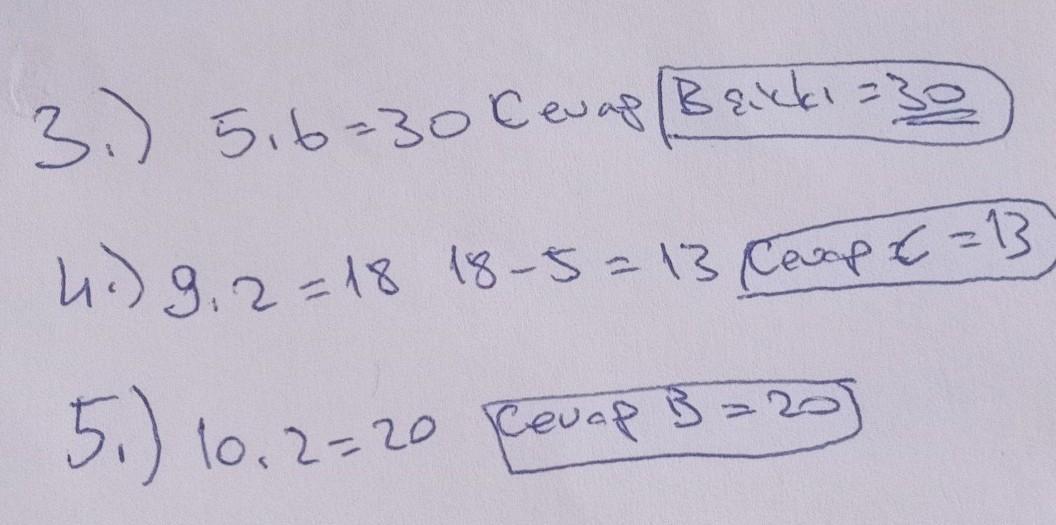 3.) 5.6=30 Cevap B şıkkı =30
4.) 9.2=18 18-5=13 Cevap C =13
5.) 10.2=20 Cevap B =20